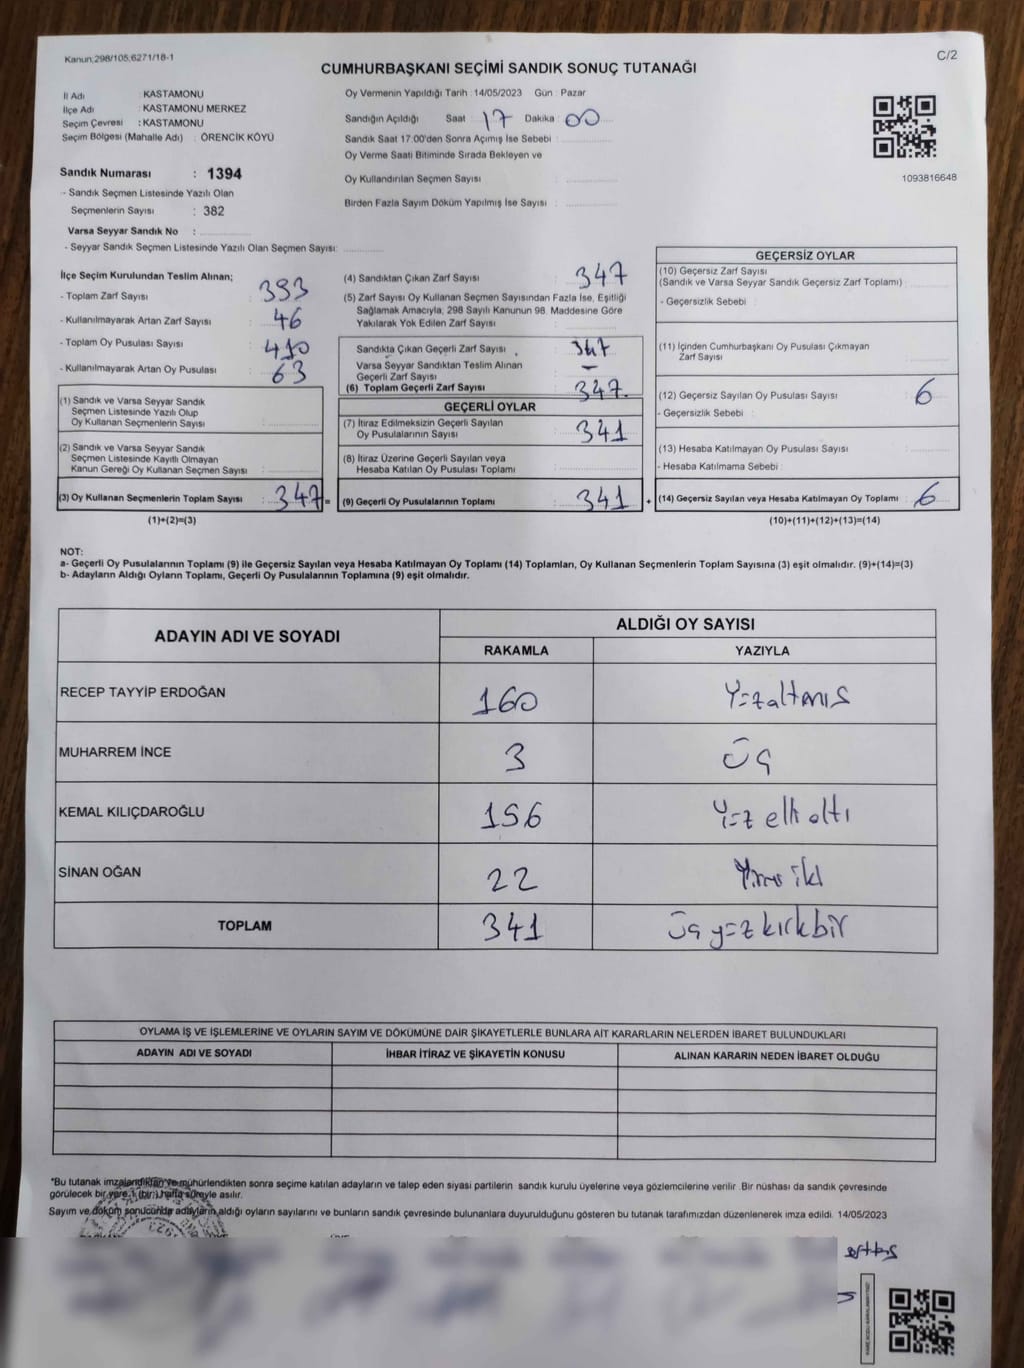 Kanun:298/105;6271/18-1
C/2
CUMHURBAŞKANI SEÇİMİ SANDIK SONUÇ TUTANAĞI
İl Adı : KASTAMONU
İlçe Adı : KASTAMONU MERKEZ
Seçim Çevresi : KASTAMONU
Seçim Bölgesi (Mahalle Adı) : ÖRENCİK KÖYÜ
Oy Vermenin Yapıldığı Tarih : 14/05/2023 Gün : Pazar
Sandığın Açıldığı Saat : 17 Dakika : 00
Sandık Saat 17.00'den Sonra Açımış İse Sebebi :
Oy Verme Saati Bitiminde Sırada Bekleyen ve
Oy Kullandırılan Seçmen Sayısı :
Birden Fazla Sayım Döküm Yapılmış İse Sayısı :
1093816648
Sandık Numarası : 1394
- Sandık Seçmen Listesinde Yazılı Olan
Seçmenlerin Sayısı : 382
Varsa Seyyar Sandık No :
- Seyyar Sandık Seçmen Listesinde Yazılı Olan Seçmen Sayısı:
İlçe Seçim Kurulundan Teslim Alınan;
- Toplam Zarf Sayısı : 393
- Kullanılmayarak Artan Zarf Sayısı : 46
- Toplam Oy Pusulası Sayısı : 410
- Kullanılmayarak Artan Oy Pusulası : 63
(1) Sandık ve Varsa Seyyar Sandık
Seçmen Listesinde Yazılı Olup
Oy Kullanan Seçmenlerin Sayısı :
(2) Sandık ve Varsa Seyyar Sandık
Seçmen Listesinde Kayıtlı Olmayan
Kanun Gereği Oy Kullanan Seçmen Sayısı :
(3) Oy Kullanan Seçmenlerin Toplam Sayısı : 347 =
(1)+(2)=(3)
(4) Sandıktan Çıkan Zarf Sayısı : 347
(5) Zarf Sayısı Oy Kullanan Seçmen Sayısından Fazla İse, Eşitliği
Sağlamak Amacıyla, 298 Sayılı Kanunun 98. Maddesine Göre
Yakılarak Yok Edilen Zarf Sayısı :
Sandıkta Çıkan Geçerli Zarf Sayısı : 347
Varsa Seyyar Sandıktan Teslim Alınan
Geçerli Zarf Sayısı : -
(6) Toplam Geçerli Zarf Sayısı : 347
GEÇERLİ OYLAR
(7) İtiraz Edilmeksizin Geçerli Sayılan
Oy Pusulalarının Sayısı : 341
(8) İtiraz Üzerine Geçerli Sayılan veya
Hesaba Katılan Oy Pusulası Toplamı :
(9) Geçerli Oy Pusulalarının Toplamı : 341 +
GEÇERSİZ OYLAR
(10) Geçersiz Zarf Sayısı
(Sandık ve Varsa Seyyar Sandık Geçersiz Zarf Toplamı) :
- Geçersizlik Sebebi :
(11) İçinden Cumhurbaşkanı Oy Pusulası Çıkmayan
Zarf Sayısı :
(12) Geçersiz Sayılan Oy Pusulası Sayısı : 6
- Geçersizlik Sebebi :
(13) Hesaba Katılmayan Oy Pusulası Sayısı :
- Hesaba Katılmama Sebebi :
(14) Geçersiz Sayılan veya Hesaba Katılmayan Oy Toplamı : 6
(10)+(11)+(12)+(13)=(14)
NOT:
a- Geçerli Oy Pusulalarının Toplamı (9) ile Geçersiz Sayılan veya Hesaba Katılmayan Oy Toplamı (14) Toplamları, Oy Kullanan Seçmenlerin Toplam Sayısına (3) eşit olmalıdır. (9)+(14)=(3)
b- Adayların Aldığı Oyların Toplamı, Geçerli Oy Pusulalarının Toplamına (9) eşit olmalıdır.
ADAYIN ADI VE SOYADI ALDIĞI OY SAYISI
RAKAMLA YAZIYLA
RECEP TAYYİP ERDOĞAN 160 Yüzaltmış
MUHARREM İNCE 3 Üç
KEMAL KILIÇDAROĞLU 156 Yüz elli altı
SİNAN OĞAN 22 Yirmi iki
TOPLAM 341 Üç yüz kırkbir
OYLAMA İŞ VE İŞLEMLERİNE VE OYLARIN SAYIM VE DÖKÜMÜNE DAİR ŞİKAYETLERLE BUNLARA AİT KARARLARIN NELERDEN İBARET BULUNDUKLARI
ADAYIN ADI VE SOYADI İHBAR İTİRAZ VE ŞİKAYETİN KONUSU ALINAN KARARIN NEDEN İBARET OLDUĞU
*Bu tutanak imzalandıktan ve mühürlendikten sonra seçime katılan adayların ve talep eden siyasi partilerin sandık kurulu üyelerine veya gözlemcilerine verilir .Bir nüshası da sandık çevresinde
görülecek bir yere 1 (bir) hafta süreyle asılır.
Sayım ve döküm sonucunda adayların aldığı oyların sayılarını ve bunların sandık çevresinde bulunanlara duyurulduğunu gösteren bu tutanak tarafımızdan düzenlenerek imza edildi. 14/05/2023